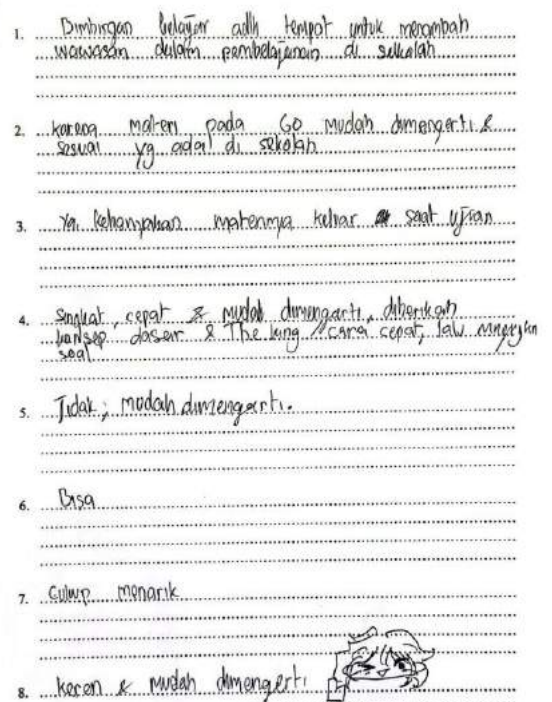 1. Bimbingan belajar adlh tempat untuk menambah
wawasan dalam pembelajaran di sekolah
2. karena materi pada GO mudah dimengerti &
sesuai yg ada di sekolah
3. Ya, kebanyakan materinya keluar saat ujian
4. Singkat, cepat & mudah dimengerti, diberikan
konsep dasar & The king / cara cepat, lalu
soal
5. Tidak, mudah dimengerti.
6. Bisa
7. Cukup menarik
8. keren & mudah dimengerti